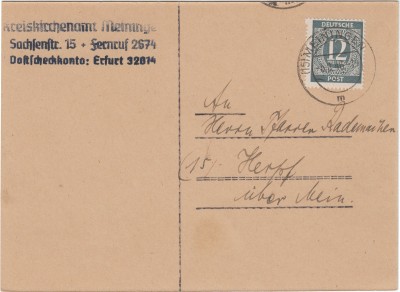 Kreiskirchenamt Meininge
Sachsenstr. 15 + Fernruf 2674
Postscheckkonto: Erfurt 32074
DEUTSCHE
12
POST
m
An
Herrn Pfarrer Rademacher
(15) Herpf
über Mein.